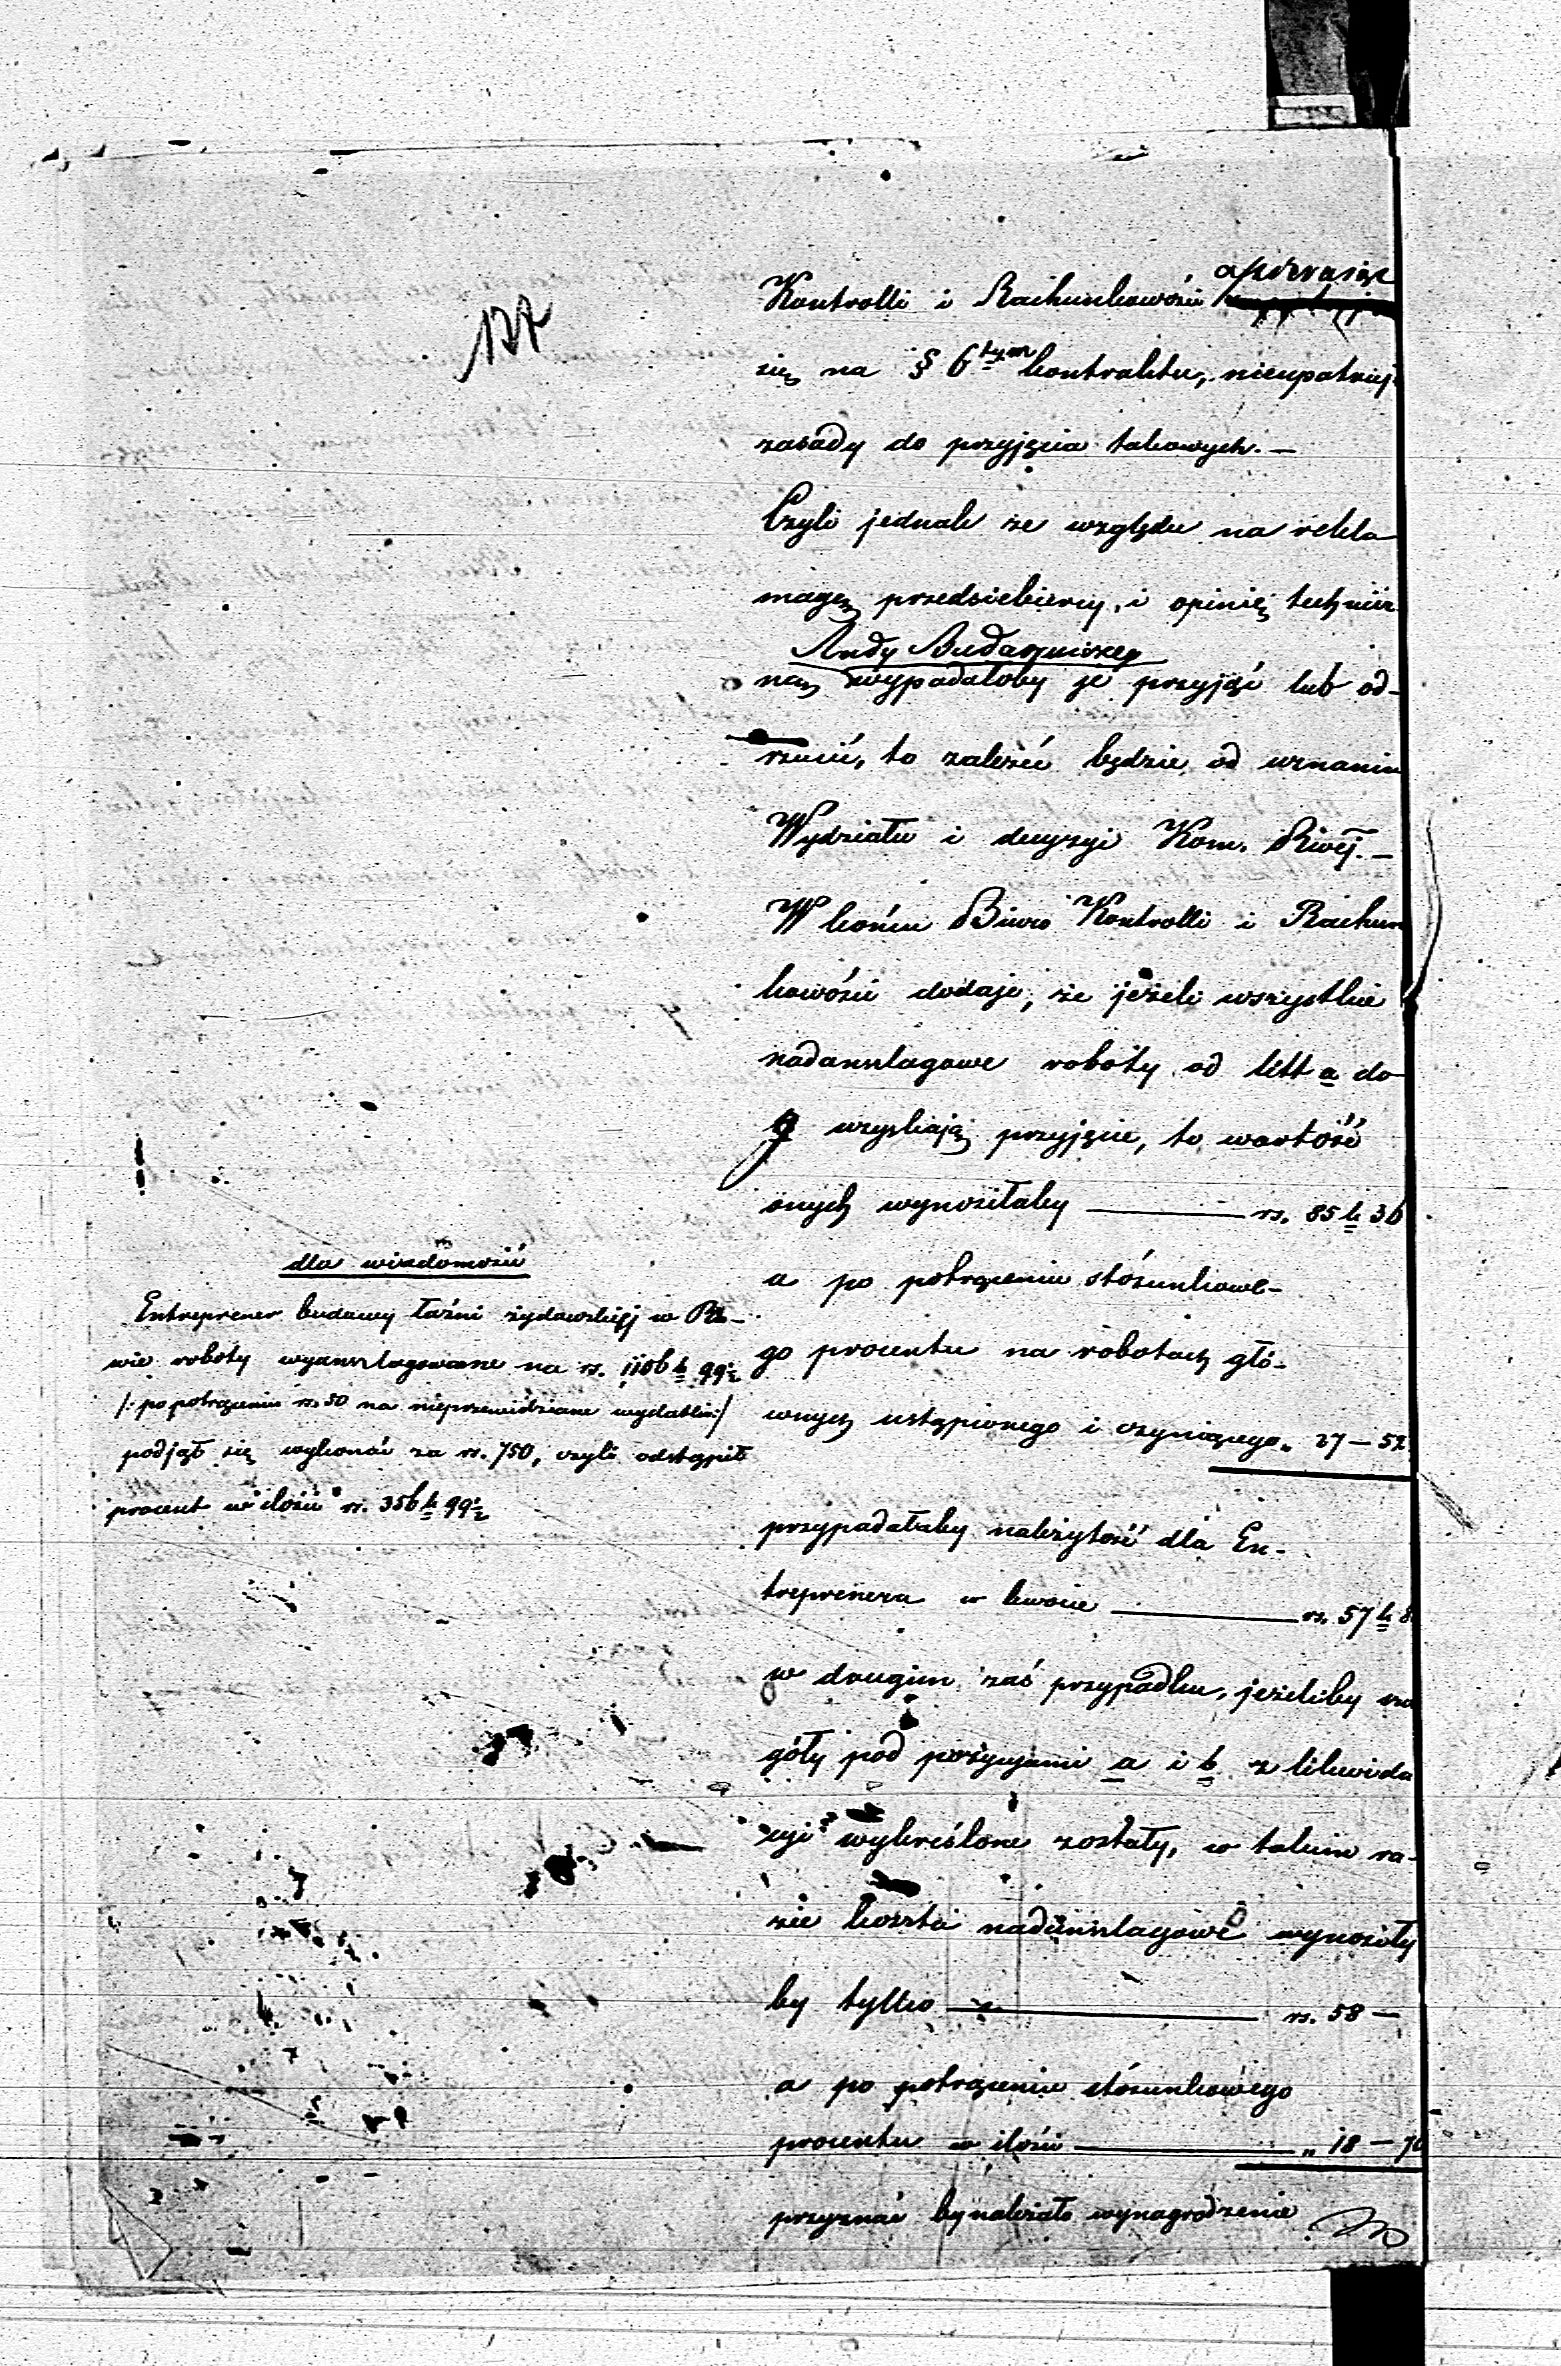 127
Kontrolli i Rachunkowości opierając
się na § 6tym kontraktu, nieupatruje
zasady do przyjęcia takowych. —
Czyli jednak ze względu na rekla
macyę przedsiebiercy, i opinię technicz
Rady Budowniczej
ną wypadałoby je przyjąć lub od-
rzucić, to zależeć będzie od uznania
Wydziału i decyzyi Kom. Rwéj. —
W końcu Biuro Kontrolli i Rachun
kowości dodaje, że jeżeli wszystkie
nadanszlagowe roboty od litt a do
g uzyskają przyjęcie, to wartość
onych wynosiłaby — rs. 85 k 36
a po potrąceniu stósunkowe-
go procentu na robotach głó-
wnych ustąpionego i czyniącego „ 27 — 52
przypadałaby należytość dla En-
treprenera w kwocie — rs. 57 k 8
w drugim zaś przypadku, jeżeliby
góły pod pozycyami a i b z likwida
cyi wykreślone zostały, w takim ra-
zie koszta nadanszlagowe wynosiły
by tylko — rs. 58 —
a po potrąceniu stósunkowego
procentu w ilości — „ 18 — 70
przyznać by należało wynagrodzenie
dla wiadomości
Entreprener budowy łaźni żydowskiéj w
wie roboty wyanszlagowane na rs. 1106 k 99½
/: po potrąceniu rs. 50 na nieprzewidziane wydatki :/
podjął się wykonać za rs. 750, czyli odstąpił
procent w ilości rs. 356 k 99½